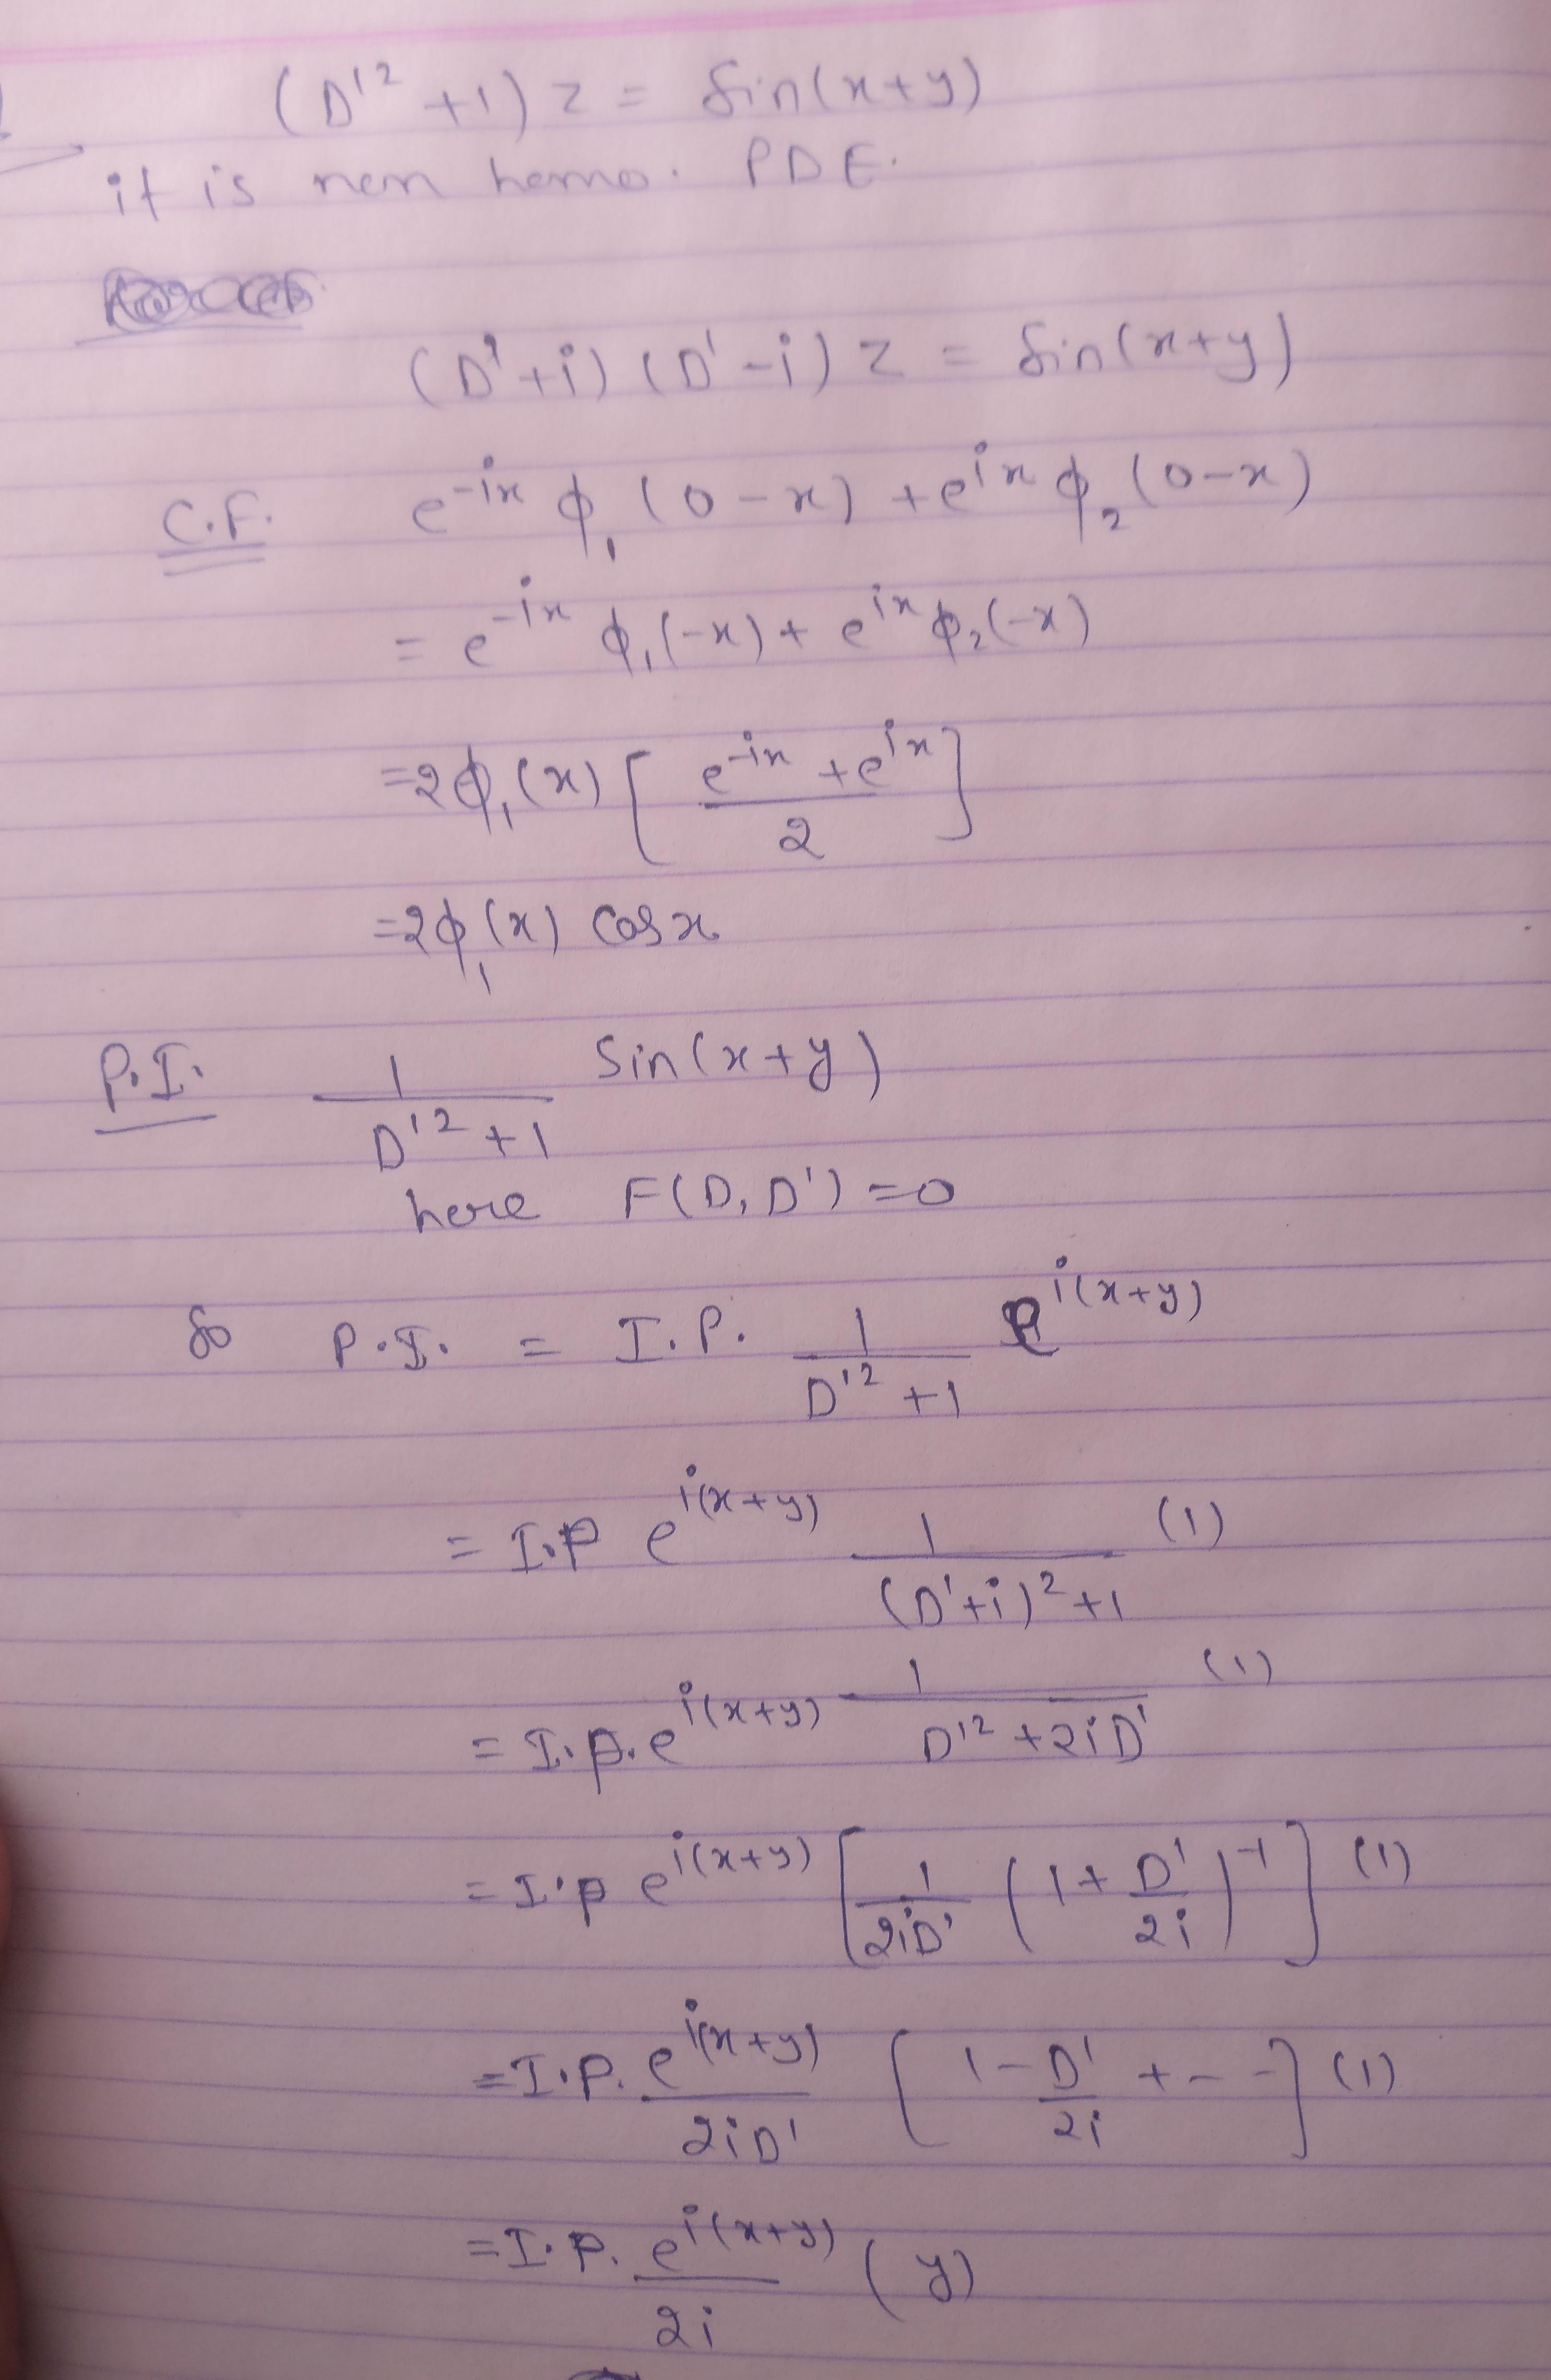 (D'² +1) z = Sin(x+y)
it is non homo. PDE.
(D'+i) (D'-i) z = Sin(x+y)
C.F. e^{-ix} ϕ₁ (0-x) + e^{ix} ϕ₂ (0-x)
= e^{-ix} ϕ₁(-x) + e^{ix} ϕ₂(-x)
= 2ϕ₁(x) [ (e^{-ix} + e^{ix}) / 2 ]
= 2ϕ₁(x) Cos x
P.I. 1/(D'²+1) Sin(x+y)
here F(D, D') = 0
So P.I. = I.P. 1/(D'²+1) e^{i(x+y)}
= I.P e^{i(x+y)} 1/((D'+i)²+1) (1)
= I.P. e^{i(x+y)} 1/(D'²+2iD') (1)
= I.P e^{i(x+y)} [ 1/(2iD') (1 + D'/(2i))^{-1} ] (1)
= I.P. e^{i(x+y)}/(2iD') [ 1 - D'/(2i) + - - ] (1)
= I.P. e^{i(x+y)}/(2i) (y)